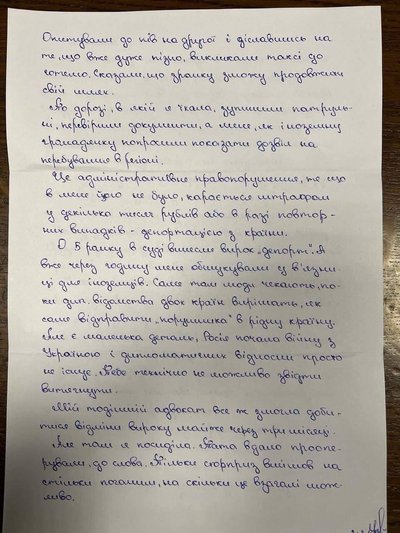 Опитували до пів на другої і діставшись на
те, що вже дуже пізно, викликами таксі до
готелю. Сказали, що зранку зможу продовжити
свій шлях.
По дорозі, в якій я їхала, зупинили патруль-
ні, перевірили документи, а мене, як іноземну
громадянку попросили показати дозвіл на
перебування в регіоні.
Це адміністративне правопорушення, те що
в мене його не було, карається штрафом
у декілька тисяч рублів або в разі повтор-
них випадків - депортацією з країни.
О 5 ранку в суді винесли вирок „депорт". А
вже через годину мене обшукували у в'язни-
ці для іноземців. Саме там люди чекають, по-
ки дип. відомства двох країн вирішать, як
саме відправити „порушника" в рідну країну.
Але є маленька деталь, Росія почала війну з
Україною і дипломатичних відносин просто
не існує. Тебе технічно не можливо звідти
витягнути.
Мій тодішній адвокат все ж змогла доби-
тися відміни вироку майже через три місяці.
Але там я посиділа. Тата вдало проопе-
рували, до слова. Тільки сюрприз вийшов на
стільки поганим, на скільки це взагалі мож-
ливо.